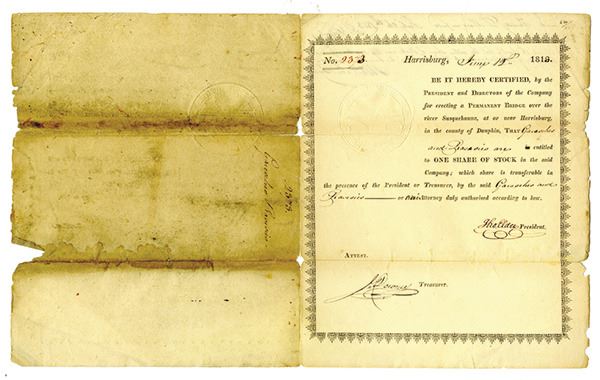 No.
Harrisburg, June 18th
BE IT HEREBY CERTIFIED, by the
PRESIDENT and DIRECTORS of the Company
for erecting a PERMANENT BRIDGE over the
river Susquehanna, at or near Harrisburg,
in the county of Dauphin, THAT
and are entitled
to ONE SHARE OF STOCK in the said
Company; which share is transferable in
the presence of the President or Treasurer, by the said and
or Attorney duly authorised according to law.
Tho Elder President.
ATTEST.
Treasurer.